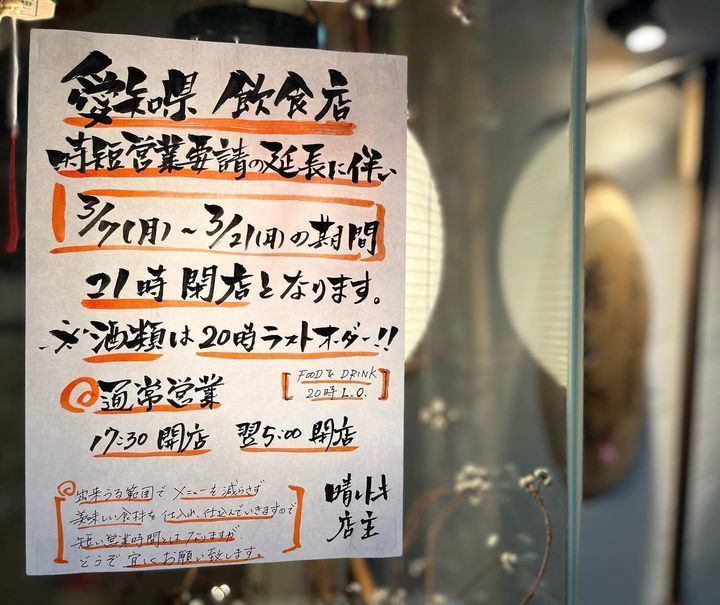 愛知県 飲食店
時短営業要請の延長に伴い
3/7(月)～3/21(月)の期間
21時閉店となります。
※酒類は20時ラストオーダー!!
通常営業
FOOD & DRINK
20時L.O.
17:30 開店 翌5:00 閉店
出来うる範囲でメニューを減らさず
美味しい食材を仕入れ、仕込んでいきますので
短い営業時間とはなりますが、
どうぞ宜しくお願い致します。
晴れトキ
店主